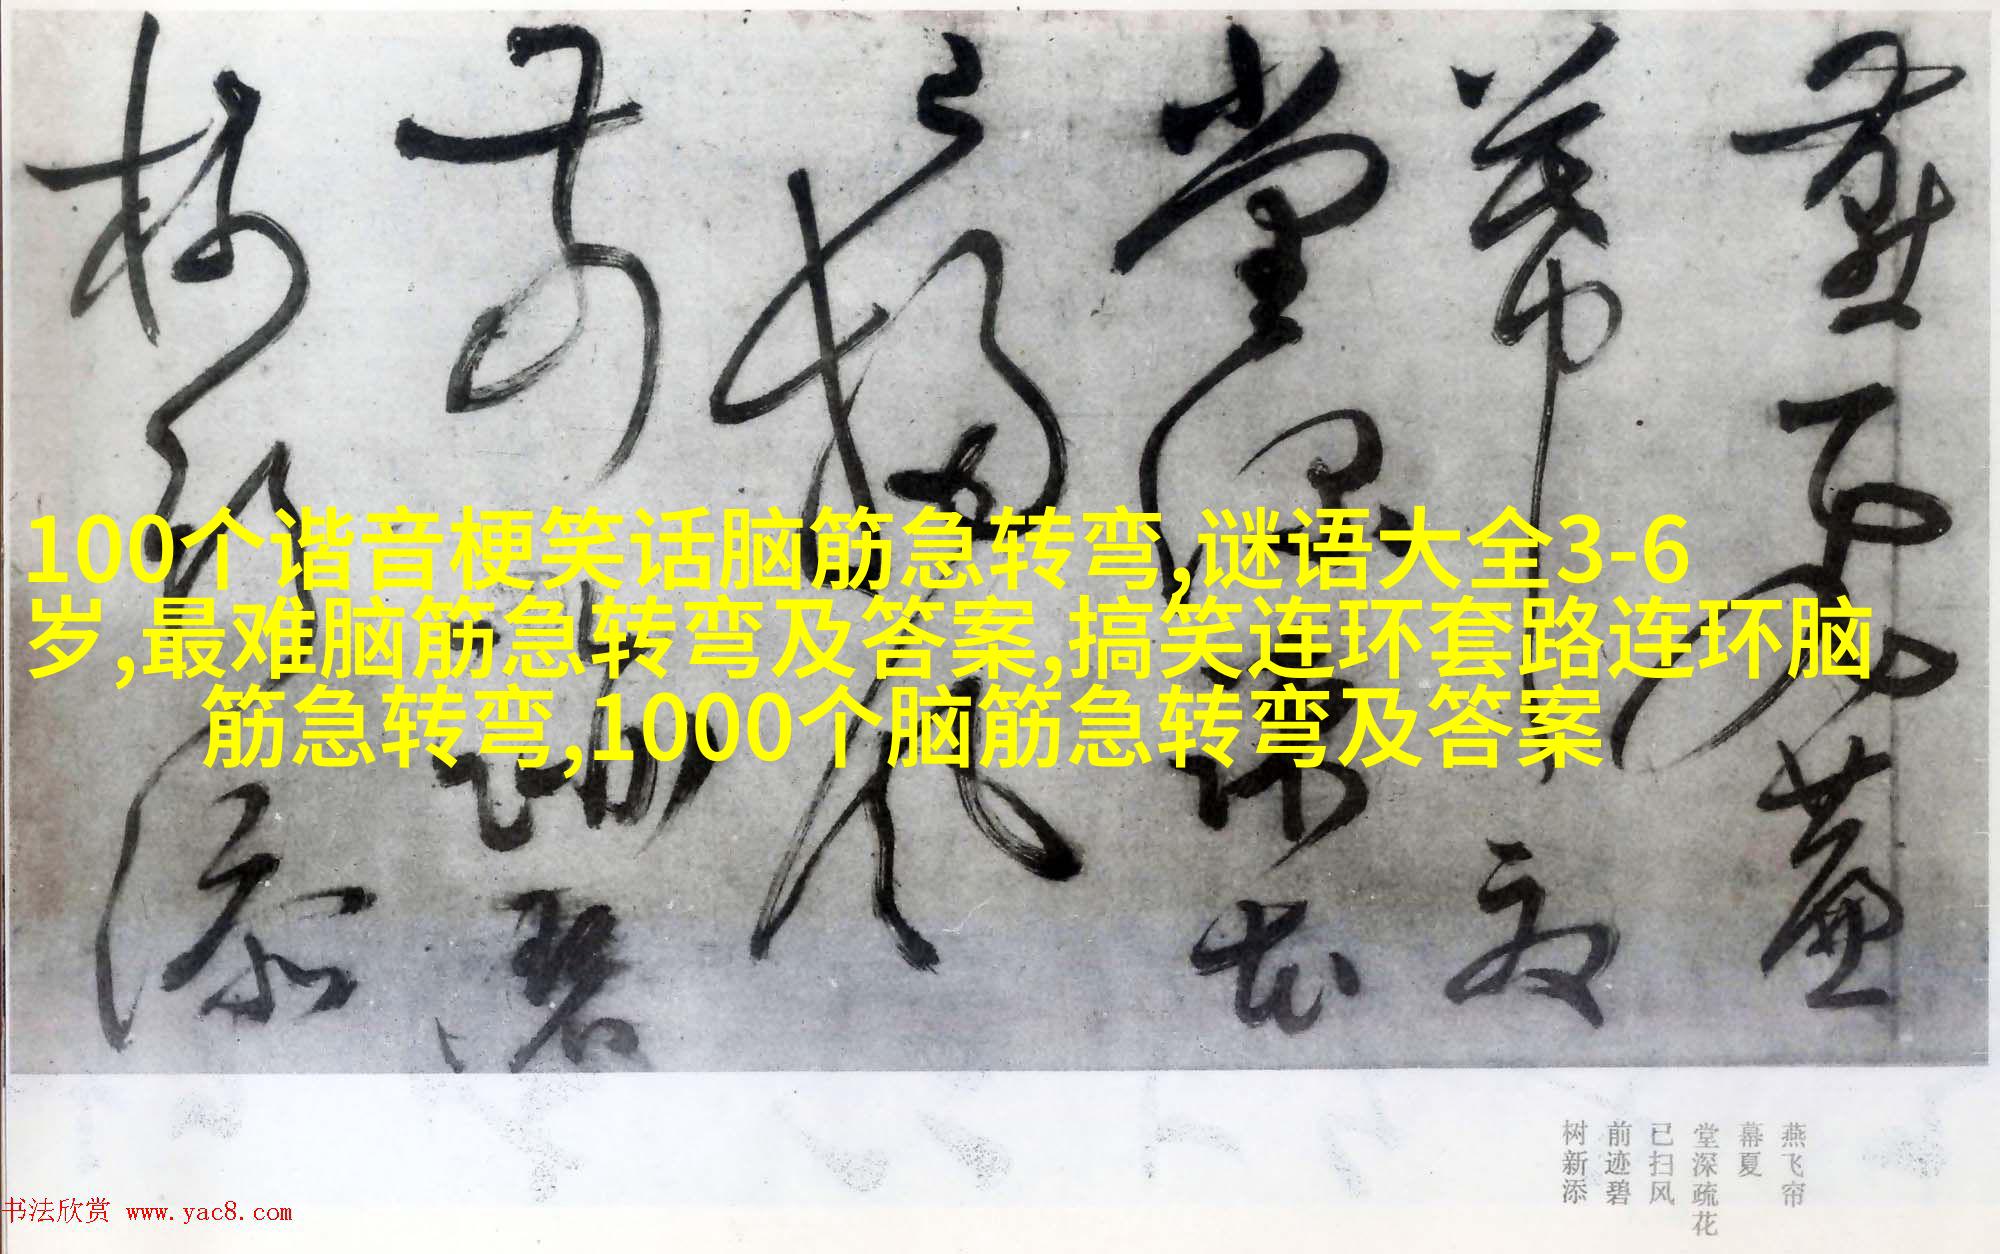 燕飛簾
幕夏
堂深疎花
已掃風
前跡碧
樹新添
100个谐音梗笑话脑筋急转弯,谜语大全3-6
岁,最难脑筋急转弯及答案,搞笑连环套路连环脑
筋急转弯,1000个脑筋急转弯及答案
燕飞帘
幕夏
堂深疏花
已扫风
前迹碧
树新添
书法欣赏 www.yac8.com